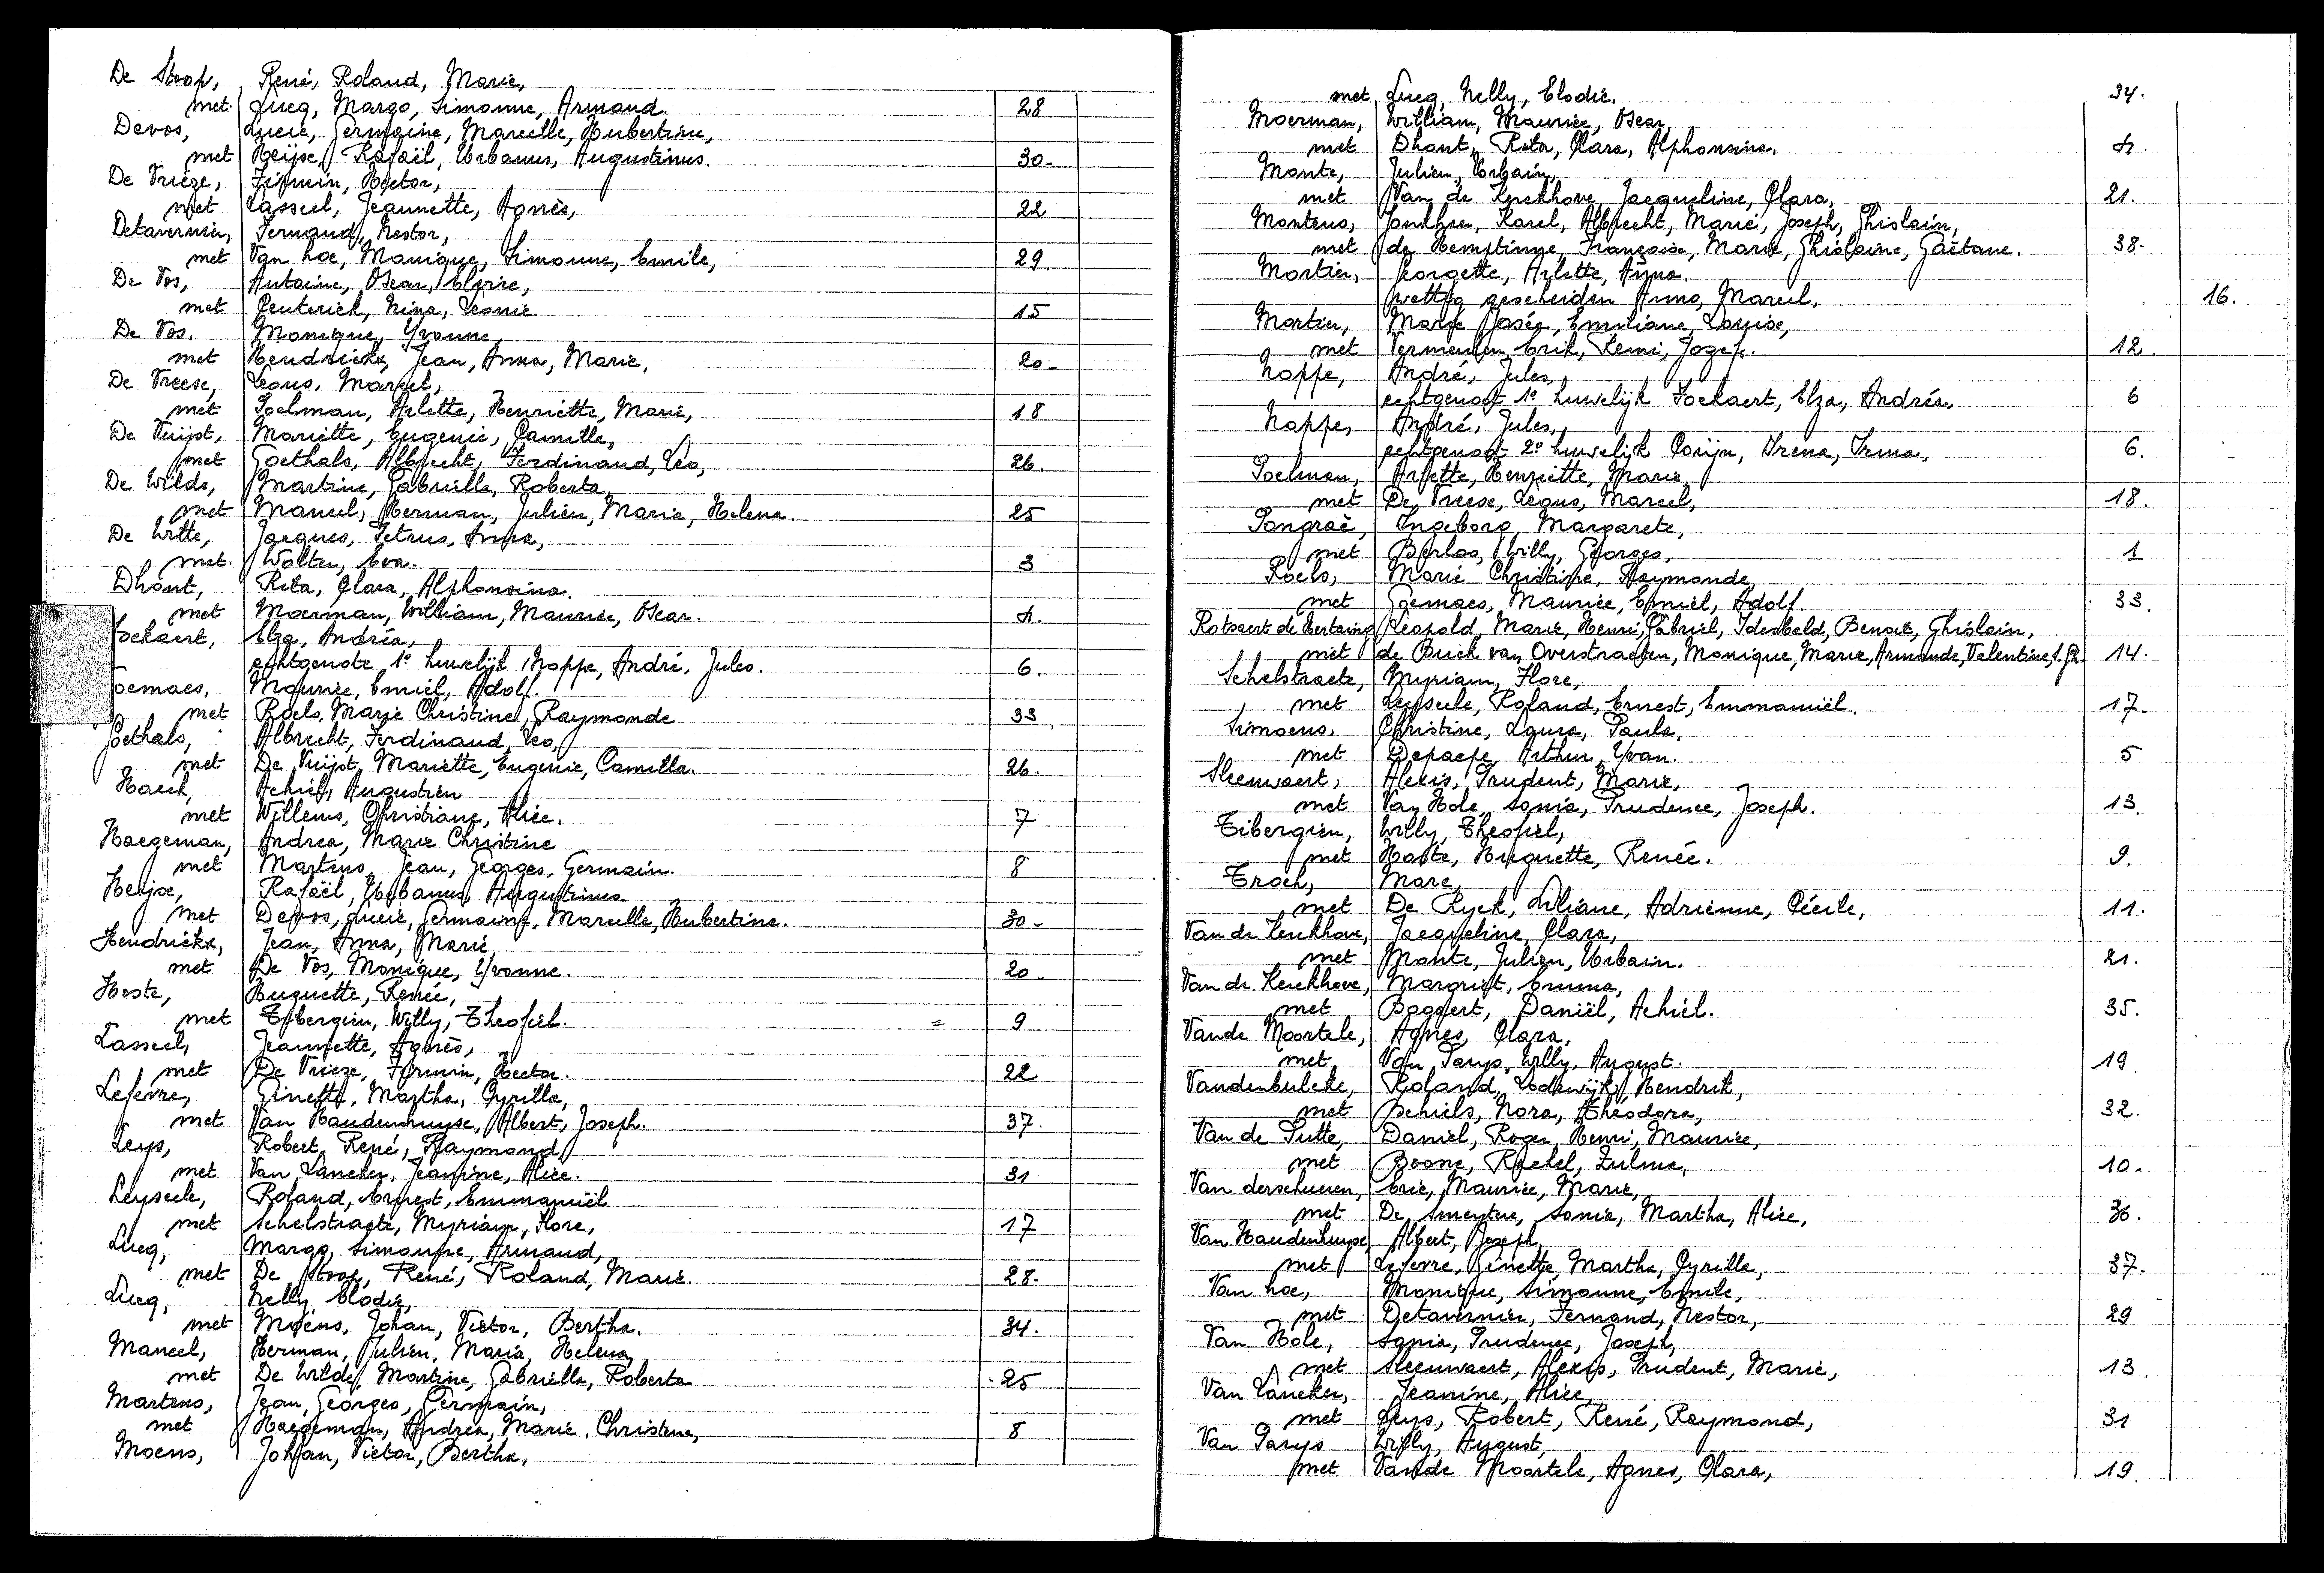 De Stoop, René, Roland, Marie,
met Lucq, Margo, Simonne, Armand. 28
Devos, Lucie, Germaine, Marcelle, Hubertine,
met Heijse, Rafaël, Urbanus, Augustinus. 30-
De Vrieze, Firmin, Hector,
met Lasseel, Jeannette, Agnès, 22
Detavernier, Fernand, Nestor,
met Van hoe, Monique, Simonne, Emile, 29.
De Vos, Antoine, Oscar, Elvire,
met Ceuterick, Nina, Leonie. 15
De Vos. Monique, Yvonne,
met Hendrickx, Jean, Anna, Marie, 20-
De Vreese, Leons, Marcel,
met Poelman, Arlette, Henriette, Marie, 18
De Vuijst, Mariette, Eugenie, Camille,
met Goethals, Albrecht, Ferdinand, Leo, 26.
De Wilde, Martine, Gabrielle, Roberta,
met Maneel, Herman, Julien, Maria, Helena. 25
De Witte, Jacques, Petrus, Anna,
met. Wolter, Eva. 3
Dhont, Rita, Clara, Alphonsina.
met Moerman, William, Maurice, Oscar. 4.
Fockaert, Elza, Andréa,
echtgenote 1e huwelijk Noppe, André, Jules. 6.
Goemaes, Maurice, Emiel, Adolf.
met Roels, Marie Christine, Raymonde 33.
Goethals, Albrecht, Ferdinand, Leo,
met De Vuijst, Mariette, Eugenie, Camilla. 26.
Haeck, Achiel, Augustien
met Willems, Christiane, Alice. 7
Haegeman, Andrea, Marie Christine
met Martens, Jean, Georges, Germain. 8
Heijse, Rafaël, Urbanus, Augustinus
met Devos, Lucie, Germaine, Marcelle, Hubertine. 30-
Hendrickx, Jean, Anna, Marie
met De Vos, Monique, Yvonne. 20-
Hoste, Huguette, Renée,
met Tibergien, Willy, Theofiel. = 9
Lasseel, Jeannette, Agnès,
met De Vrieze, Firmin, Hector. 22
Lefevre, Ginette, Martha, Cyrilla,
met Van Haudenhuyse, Albert, Joseph. 37.
Leys, Robert, René, Raymond
met Van Lancker, Jeanine, Alice. 31
Leyseele, Roland, Ernest, Emmanuël
met Schelstraete, Myriam, Flore, 17
Lucq, Margo, Simonne, Armand,
met De Stoop, René, Roland, Marie. 28.
Lucq, Nelly, Elodie,
met Moens, Johan, Victor, Bertha. 34.
Maneel, Herman, Julien, Maria, Helena,
met De Wilde, Martine, Gabrielle, Roberta 25
Martens, Jean, Georges, Germain,
met Haegeman, Andrea, Marie, Christine, 8
Moens, Johan, Victor, Bertha,
met Lucq, Nelly, Elodie. 34.
Moerman, William, Maurice, Oscar,
met Dhont, Rita, Clara, Alphonsina. 4.
Monte, Julien, Urbain,
met Van de Kerckhove, Jacqueline, Clara, 21.
Montens, Jonkheer, Karel, Albrecht, Marie, Joseph, Ghislain,
met de Hemptinne, Françoise, Marie, Ghislaine, Gaëtane. 38.
Mortier, Georgette, Arlette, Anna.
wettig gescheiden Anno, Marcel, 16.
Mortier, Marie Josée, Emiliane, Louise,
met Vermeulen, Erik, Remi, Jozef. 12.
Noppe, André, Jules,
echtgenoot 1e huwelijk Fockaert, Elza, Andréa, 6
Noppe, André, Jules,
echtgenoot 2e huwelijk Corijn, Irena, Irma, 6.
Poelman, Arlette, Henriette, Marie,
met De Vreese, Leons, Marcel, 18.
Pongraè, Ingeborg, Margarete,
met Berlos, Willy, Georges, 1
Roels, Marie Christine, Raymonde,
met Goemaes, Maurice, Emiel, Adolf. 33.
Rotsaert de Hertaing Leopold, Marie, Henri, Gabriel, Idesbald, Benoit, Ghislain,
met de Buck van Overstraeten, Monique, Marie, Armande, Valentine, J. Gh. 14.
Schelstraete, Myriam, Flore,
met Leyseele, Roland, Ernest, Emmanuël. 17.
Simoens, Christine, Laura, Paula,
met Depaepe, Arthur, Yvan. 5
Sleeuwaert, Alexis, Prudent, Marie,
met Van Hole, Sonia, Prudence, Joseph. 13.
Tibergien, Willy, Theofiel,
met Hoste, Huguette, Renée. 9.
Troch, Marc,
met De Ryck, Liliane, Adrienne, Cécile, 11.
Van de Kerckhove, Jacqueline, Clara,
met Monte, Julien, Urbain. 21.
Van de Kerckhove, Margriet, Emma,
met Bogaert, Daniël, Achiel. 35.
Vande Moortele, Agnes, Clara,
met Van Parys, Willy, August. 19.
Vandenbulcke, Roland, Lodewijk, Hendrik,
met Behiels, Nora, Théodora, 32.
Van de Putte, Daniel, Roger, Henri, Maurice,
met Boone, Rachel, Zulma, 10.
Van derschueren, Eric, Maurice, Marie,
met De Smeytere, Sonia, Martha, Alice, 36.
Van Haudenhuyse, Albert, Joseph,
met Lefevre, Ginette, Martha, Cyrilla, 37.
Van hoe, Monique, Simonne, Emile,
met Detavernier, Fernand, Nestor, 29
Van Hole, Sonia, Prudence, Joseph,
met Sleeuwaert, Alexis, Prudent, Marie, 13.
Van Lancker, Jeanine, Alice,
met Leys, Robert, René, Raymond, 31
Van Parys Willy, August,
met Vande Moortele, Agnes, Clara, 19.